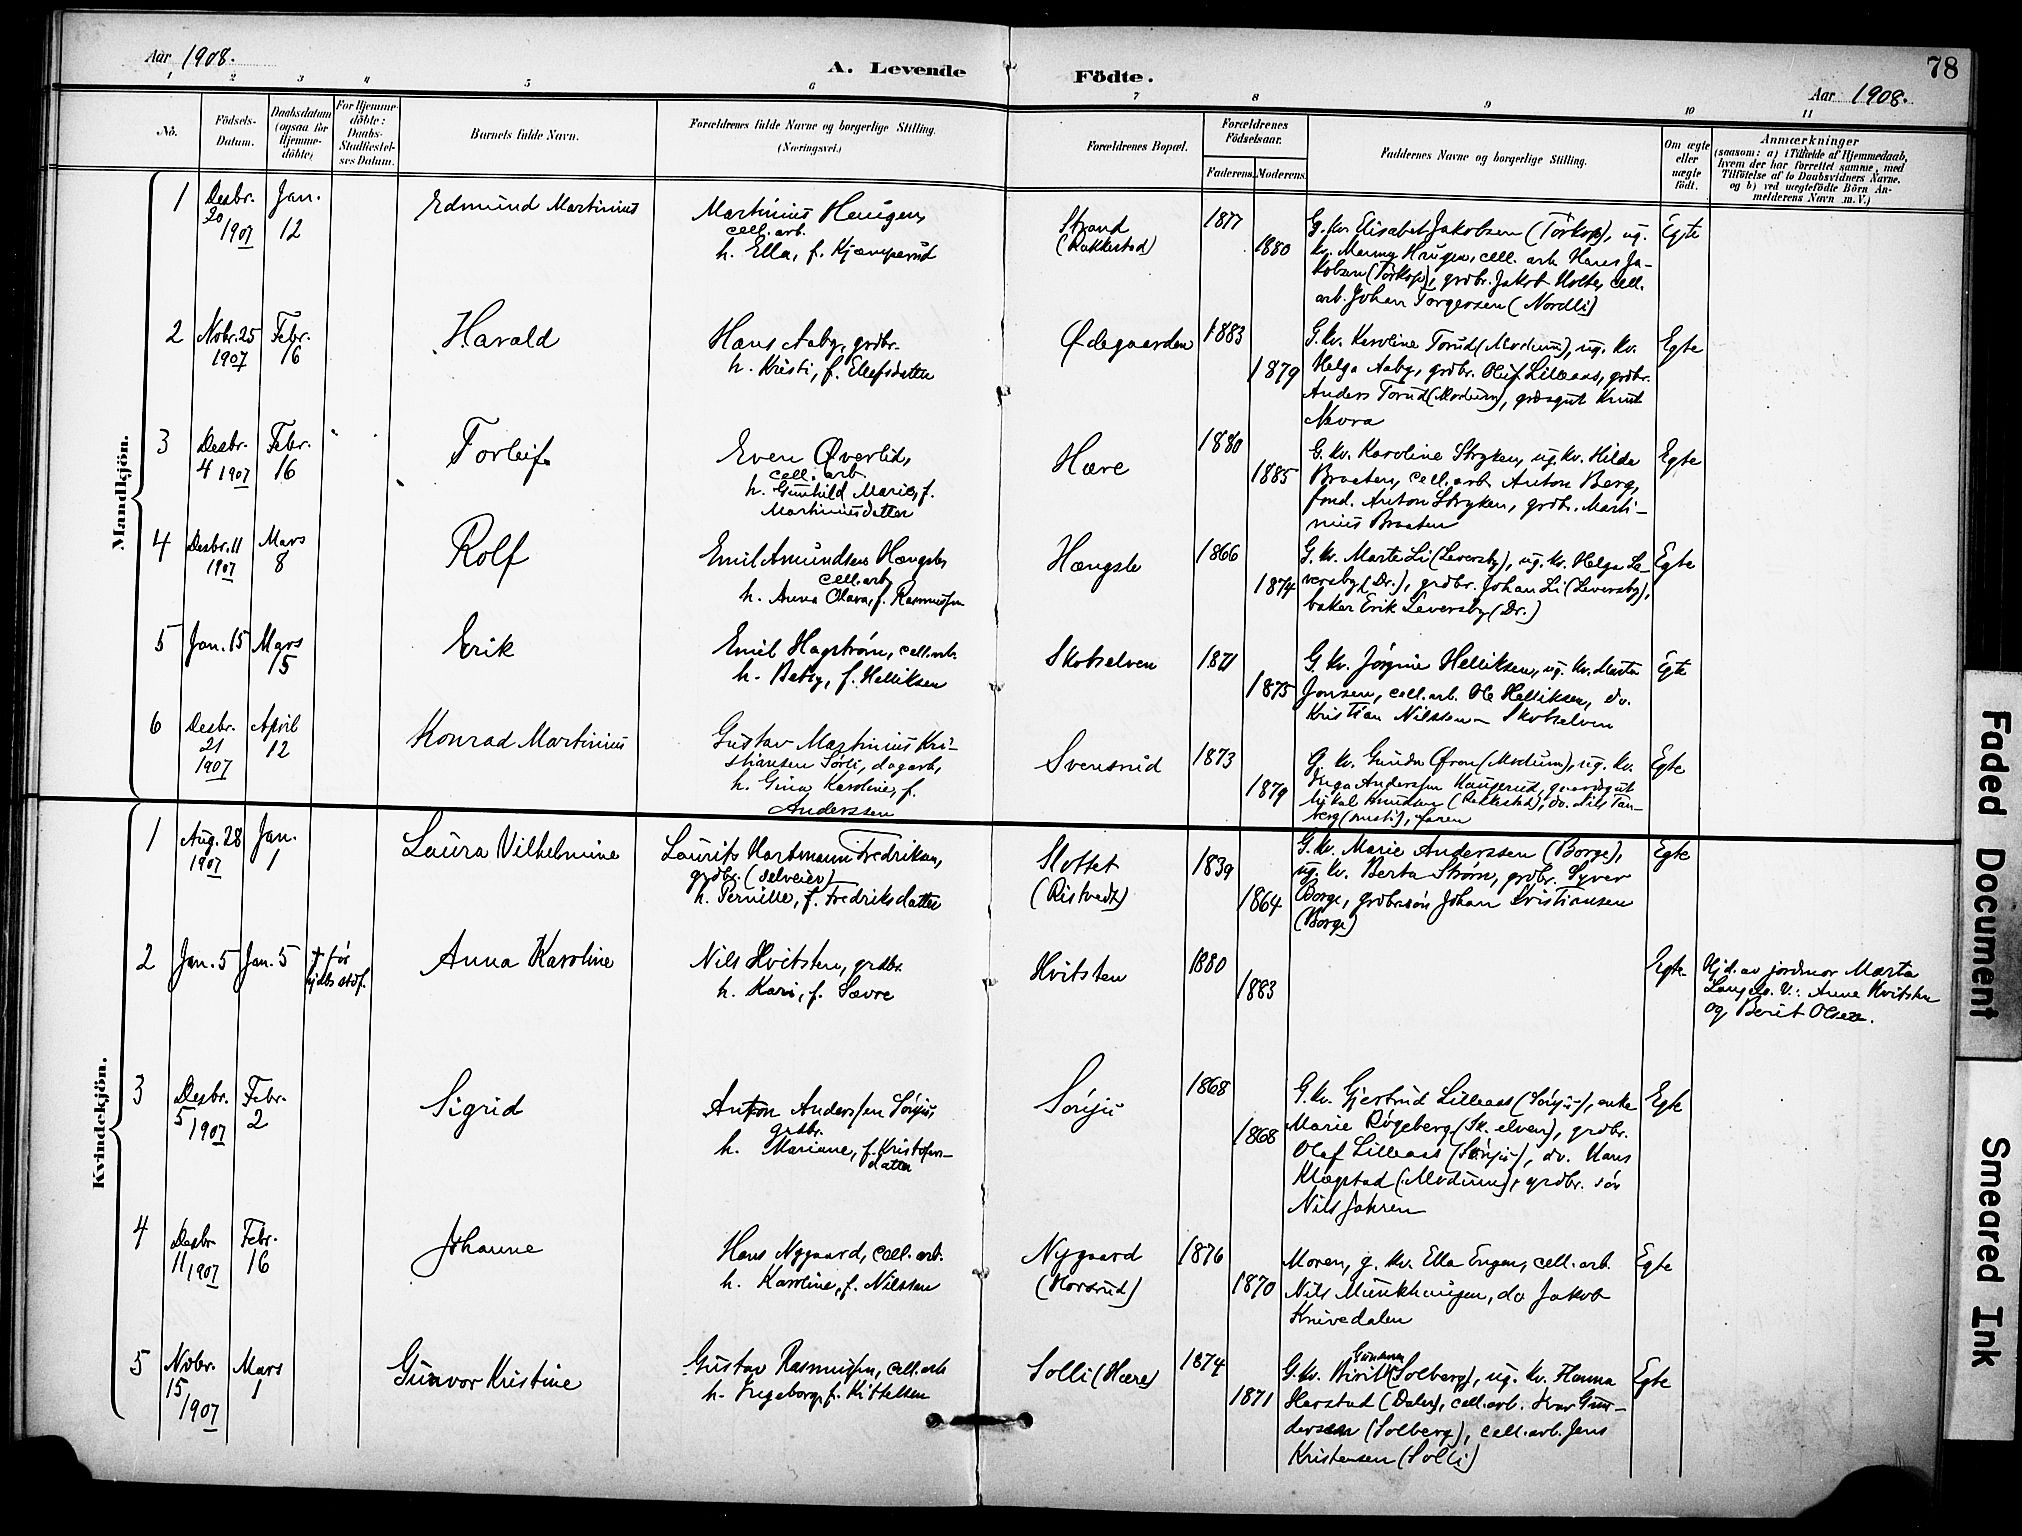 Aar 1908.
A. Levende Födte.
78
Aar 1908.
1 2 3 4 5 6 7 8 9 10 11
No.
Födsels-Datum.
Daabsdatum (ogsaa for Hjemme-döbte)
For Hjemme-döbte: Daabs-Stadfæstel-ses Datum.
Barnets fulde Navn.
Forældrenes fulde Navne og borgerlige Stilling. (Næringsvei.)
Forældrenes Bopæl.
Forældrenes Födselsaar.
Faderens. Moderens.
Faddernes Navne og borgerlige Stilling.
Om ægte eller uægte födt.
Anmærkninger
(saasom: a) i Tilfælde af Hjemmedaab,
hvem der har forrettet samme, med
Tilföielse af to Daabsvidners Navne.
og b) ved uægtefödte Börn An-
melderens Navn m.V.)
Mandkjön.
1 Desbr. 20 1907 Jan. 12 Edmund Martinius
Martinius Haugen,
cell. arb.
h. Ella, f. Kjæmperud
Strand
(Rakkestad)
1877 1880
G. kv. Elisabet Jakobsen (Torkop), ug.
kv. Menny Haugen, cell. arb. Hans Ja-
kobsen (Torkop), grdbr. Jakob Holte, cell.
arb. Johan Torgersen (Nordli)
Egte
2 Nobr. 25 1907 Febr. 16 Harald
Hans Aaby, grdbr.
h. Kristi, f. Elefsdatter
Ødegaarden
1883 1879
G. kv. Karoline Torud (Modum), ug. kv.
Helga Aaby, grdbr. Oluf Lilleaas, grdbr.
Anders Torud (Modum), grdsgut Knut
Mora
Egte
3 Desbr. 4 1907 Febr. 16 Torleif
Even Øverlid,
cell. arb.
h. Gunhild Marie, f.
Martiniusdatter
Hære
1880 1885
G. kv. Karoline Stryken, ug. kv. Hilda
Braaten, cell. arb. Anton Berg,
ford. Anton Stryken, grdbr. Marti-
nius Braaten
Egte
4 Desbr. 11 1907 Mars 8 Rolf
Emil Amundsen Hængsle,
cell. arb.
h. Anna Olava, f. Rasmussen
Hængsle
1866 1874
G. kv. Marte Li (Leversby), ug. kv. Helga Le-
versby (Dr.), grdbr. Johan Li (Leversby),
baker Erik Leversby (Dr.)
Egte
5 Jan. 15 Mars 15 Erik
Emil Hagstrøm, cell. arb.
h. Betsy, f. Helliksen
Skotselven
1871 1875
G. kv. Jørgine Helliksen, ug. kv. Marta
Jonsen, cell. arb. Ole Helliksen, do.
Kristian Nilssen - Skotselven
Egte
6 Desbr. 21 1907 April 12 Konrad Martinius
Gustav Martinius Kri-
stiansen Sørli, dagarb.,
h. Gina Karoline, f.
Anderssen
Svensrud
1873 1879
G. kv. Gunda Øren (Modum), ug. kv.
Inga Anderssen Haugerud, gaardsgut
Mikal Knudsen (Rakkestad), do. Nils Tan-
berg (nusti), faren
Egte
Kvindekjön.
1 Aug. 28 1907 Jan. 1 Laura Vilhelmine
Laurits Hartmann Fredriksen,
grdbr. (selveier)
h. Pernille, f. Fredriksdatter
Slottet
(Ristvedt)
1839 1864
G. kv. Marie Anderssen (Borge),
ug. kv. Berta Strøm, grdbr. Syver
Borge, grdbrsøn Johan Kristiansen
(Borge)
Egte
2 Jan. 5 Jan. 5 † før hjdbs stdf. Anna Karoline
Nils Hvitsten, grdbr.
h. Kari, f. Sævre
Hvitsten
1880 1883
Egte
Hjd. av jordmor Marta
Langelo. V.: Anne Hvitsten
og Berit Olsen.
3 Desbr. 5 1907 Febr. 2 Sigrid
Anton Anderssen Sønju,
grdbr.
h. Mariane, f. Kristofers-
datter
Sønju
1868 1868
G. kv. Gjertrud Lilleaas (Sønju), enke
Marie Røgeberg (Sk. elven), grdbr.
Olaf Lilleaas (Sønju), do. Hans
Klægstad (Modum), grdbr. søn
Nils Jahren
Egte
4 Desbr. 11 1907 Febr. 16 Johanne
Hans Nygaard, cell. arb.
h. Karoline, f. Nilssen
Nygaard
(Horsrud)
1876 1870
Moren, g. kv. Ella Engen, cell. arb.
Nils Munkhaugen, do Jakob
Knivedalen
Egte
5 Nobr. 15 1907 Mars 1 Gunvor Kristine
Gustav Rasmussen, cell. arb
h. Ingeborg, f. Kittelsen
Solli (Hære)
1874 1871
G. kv. Birit (Solberg), ug. kv. Hanna
Harstad (Dalen), cell. arb. Ivar Gun-
dersen (Solberg), cell. arb. Jens
Kristensen (Solli)
Egte
Faded Document
Smeared Ink